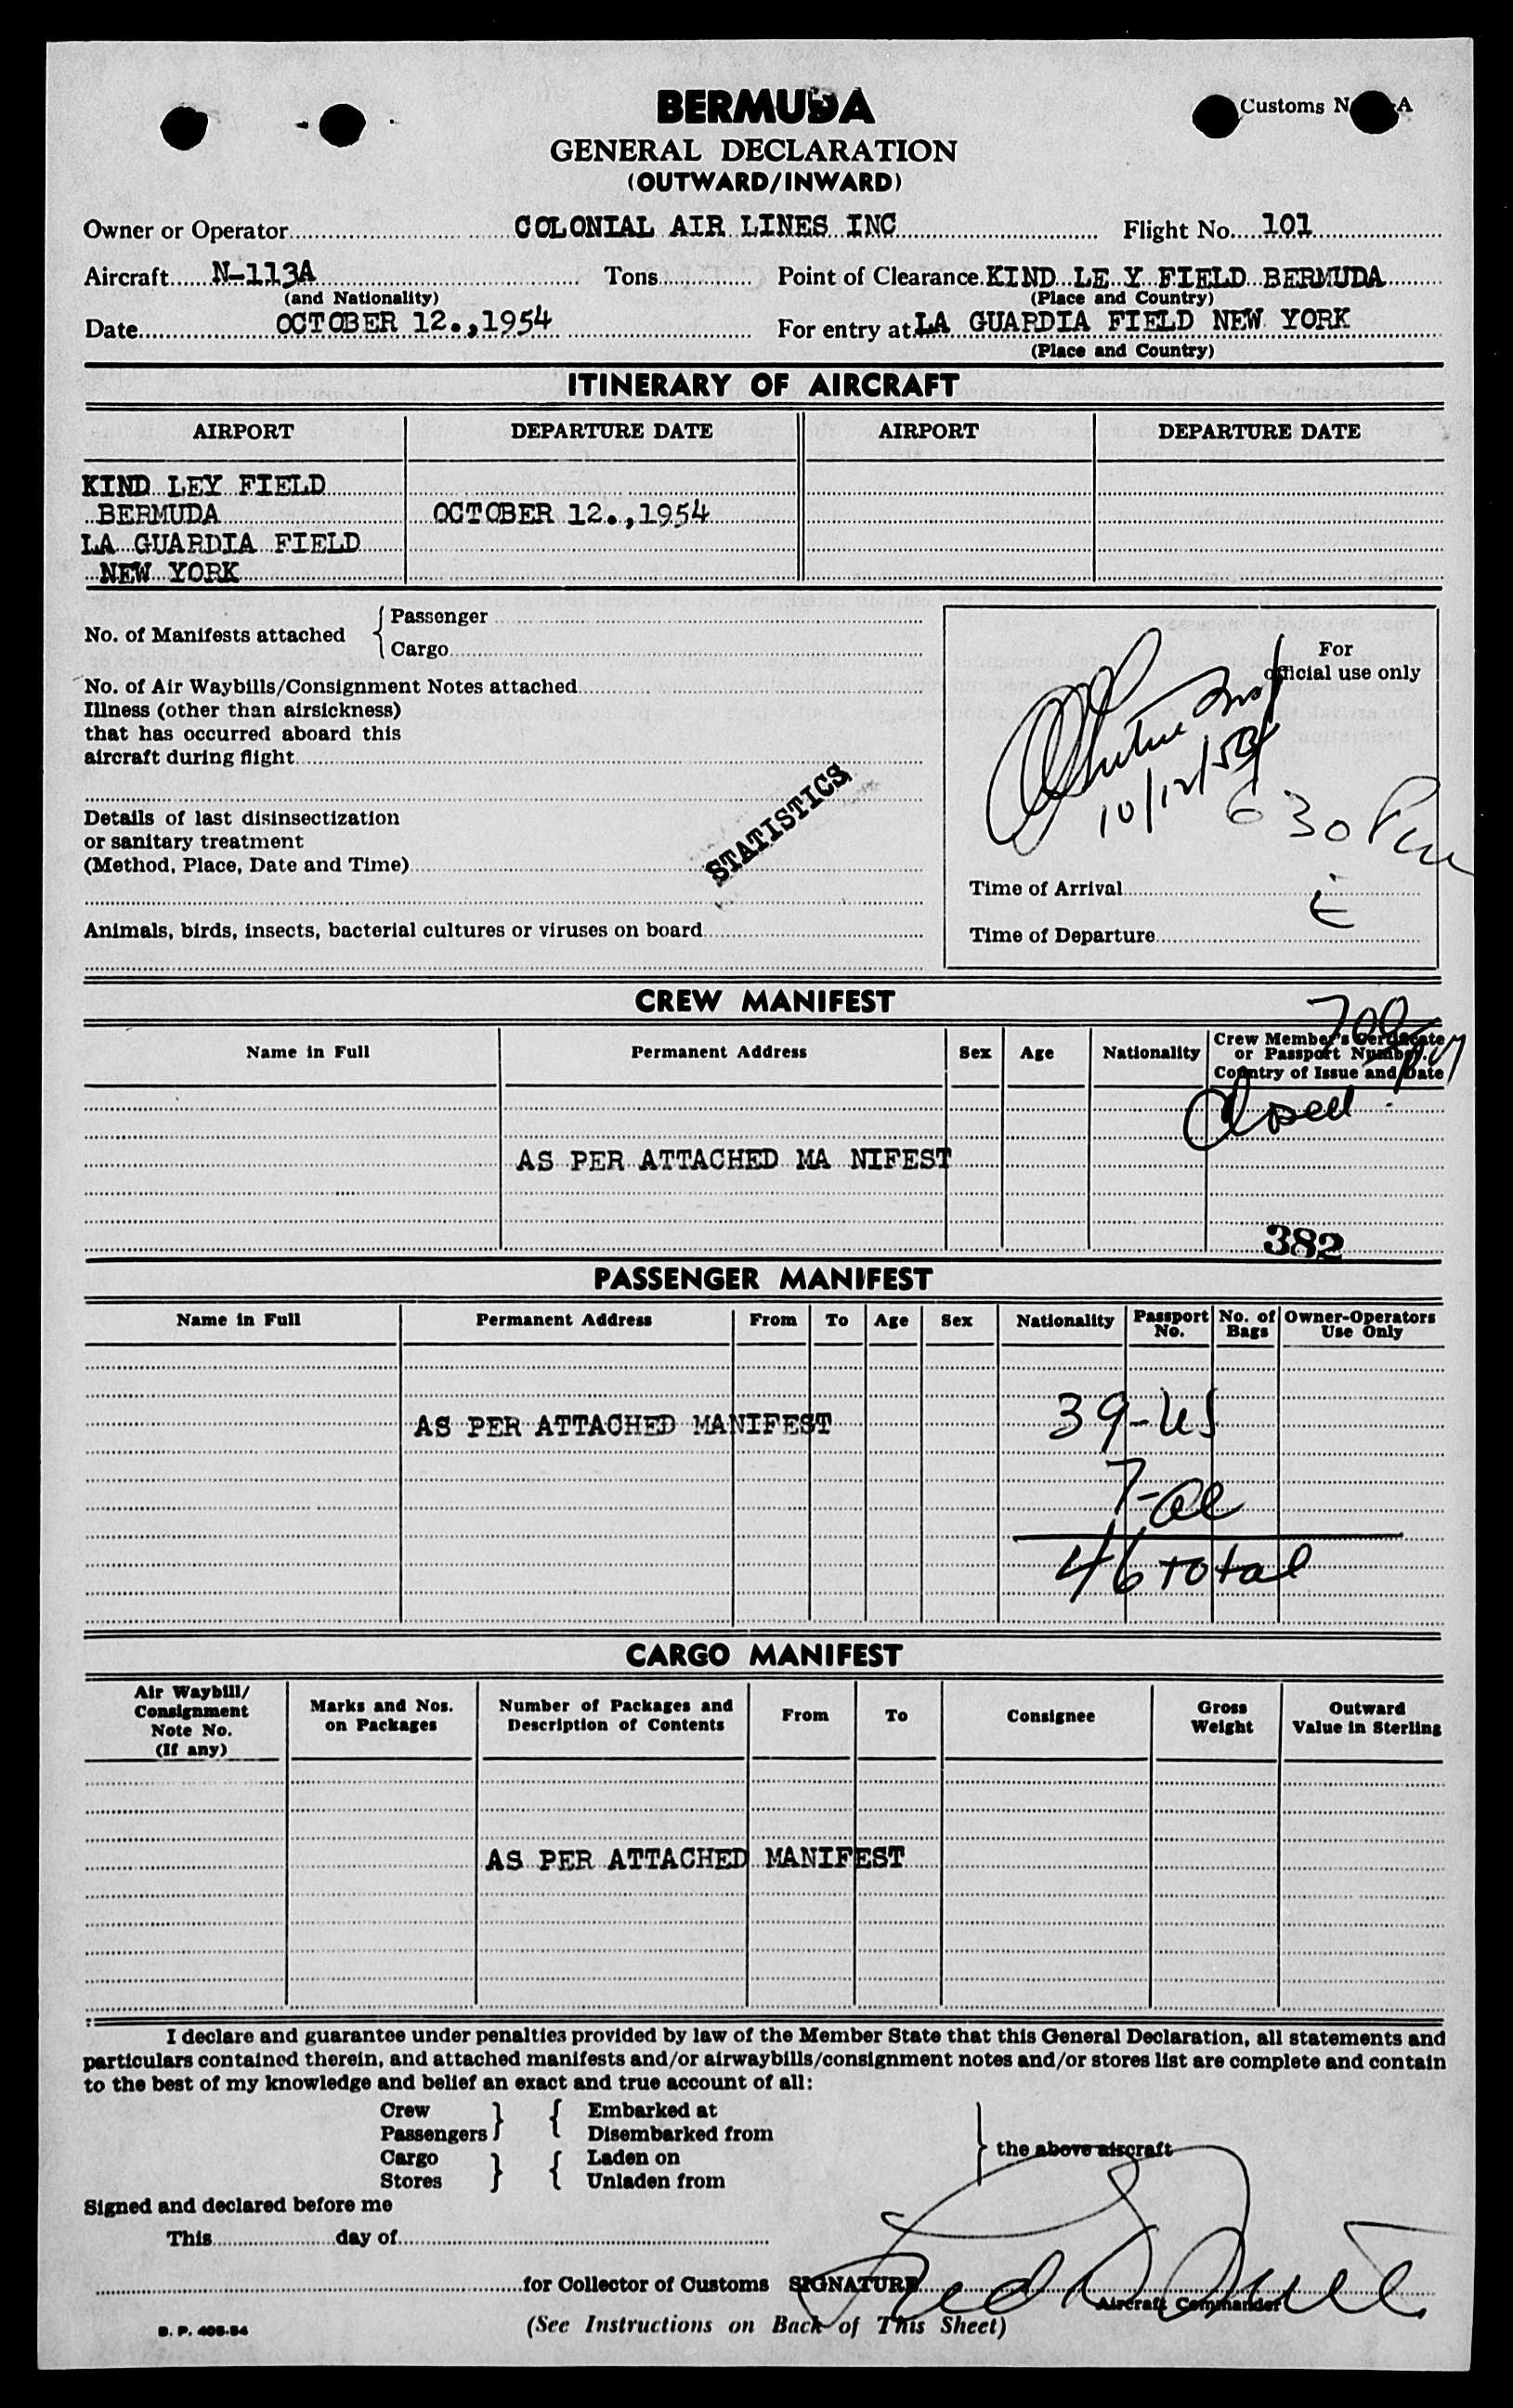 BERMUDA
Customs
A
GENERAL DECLARATION
(OUTWARD/INWARD)
Owner or Operator COLONIAL AIR LINES INC Flight No. 101
Aircraft N-113A Tons Point of Clearance KIND LE Y FIELD BERMUDA
(and Nationality) (Place and Country)
Date OCTOBER 12.,1954 For entry at LA GUARDIA FIELD NEW YORK
(Place and Country)
ITINERARY OF AIRCRAFT
AIRPORT DEPARTURE DATE AIRPORT DEPARTURE DATE
KIND LEY FIELD
BERMUDA OCTOBER 12.,1954
LA GUARDIA FIELD
NEW YORK
No. of Manifests attached { Passenger
Cargo
For
official use only
No. of Air Waybills/Consignment Notes attached
Illness (other than airsickness)
that has occurred aboard this
aircraft during flight
10/12/54
630 Pm
STATISTICS
Details of last disinsectization
or sanitary treatment
(Method, Place, Date and Time)
Time of Arrival
Animals, birds, insects, bacterial cultures or viruses on board
Time of Departure
CREW MANIFEST
Name in Full Permanent Address Sex Age Nationality Crew Member's Certificate
or Passport Number.
Country of Issue and Date
Closed
AS PER ATTACHED MA NIFEST
382
PASSENGER MANIFEST
Name in Full Permanent Address From To Age Sex Nationality Passport No. No. of Bags Owner-Operators Use Only
39-US
AS PER ATTACHED MANIFEST
7-al
46 total
CARGO MANIFEST
Air Waybill/ Consignment Note No. (If any) Marks and Nos. on Packages Number of Packages and Description of Contents From To Consignee Gross Weight Outward Value in Sterling
AS PER ATTACHED MANIFEST
I declare and guarantee under penalties provided by law of the Member State that this General Declaration, all statements and
particulars contained therein, and attached manifests and/or airwaybills/consignment notes and/or stores list are complete and contain
to the best of my knowledge and belief an exact and true account of all:
Crew } { Embarked at
Passengers Disembarked from
Cargo } { Laden on
Stores Unladen from
} the above aircraft
Signed and declared before me
This day of
for Collector of Customs SIGNATURE
Aircraft Commander
(See Instructions on Back of This Sheet)
B. P. 408-54